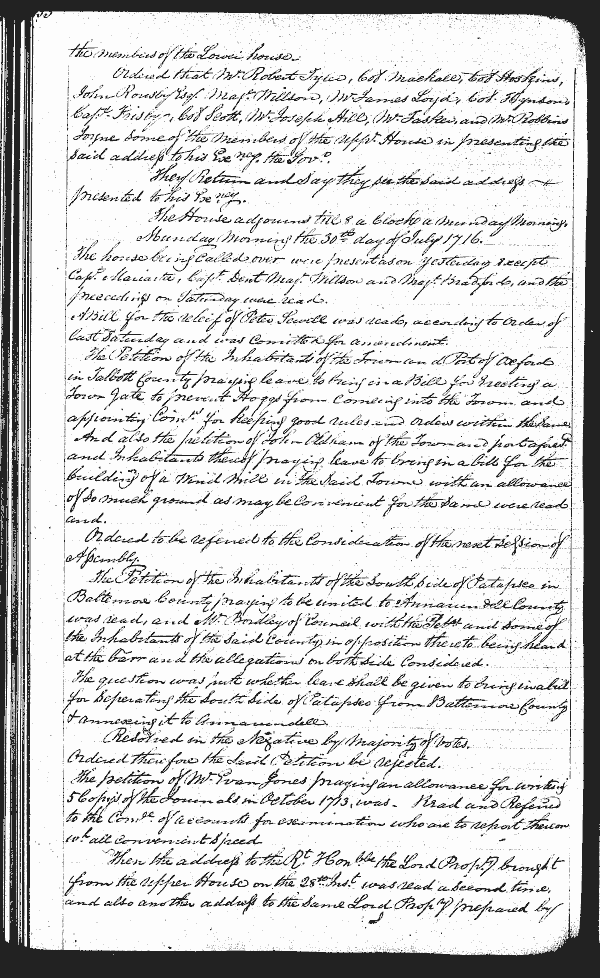 the members of the Lower house.
Ordered that Mr. Robert Tyler, Col. Mackall, Col Hoskins,
John Rousby Esqr. Majr. Willson, Mr James Loyd, Col. Hynson,
Capt. Frisby, Col Scott, Mr. Joseph Hill, Mr. Tasker, and Mr. Robbins
Joyne Some of the Members of the uppr. House in presenting the
Said address to his Exncy. the Govr.
They Return and Say they see the Said address
presented to his Exncy.
The House adjourns till 8 a Clock a Munday Morning.
Munday Morning the 30th day of July 1716.
The house being Called over were present as on yesterday Except
Capt. Mariarte, Capt. Dent Majr. Willson and Majr. Bradford, and the
preceedings on Saturday were read.
A Bill for the relief of Peter Sewell was read, according to Order of
last Saturday and was Comitted for amendment.
The Petition of the Inhabitants of the Town and Port of Oxford
in Talbott County praying leave to bring in a Bill for Erecting a
Town Gate to prevent Hoggs from Comeing into the Town and
appointing Comrs. for keeping good rules and orders within the Same
And also the petition of John Oldham of the Town and port aforesd.
and Inhabitants thereof praying leave to bring in a bill for the
building of a Wind Mill in the Said Towne with an allowance
of So much ground as may be Convenient for the Same were read
and.
Ordered to be referred to the Consideration of the next Session of
Assembly.
The Petition of the Inhabitants of the South Side of Patapsco in
Baltemore County praying to be united to Annarundell County
was read, and Mr. Bordley of Councill with the Petrs. and Some of
the Inhabitants of the Said County in opposition thereto being heard
at the barr and the allegations on both Side Considered.
The question was put whether leave shall be given to bring in a bill
for Seperating the South Side of Patapsco from Baltemore County
& annexing it to Annarundell
Resolved in the Negative by Majority of Votes.
Ordered therefore the Said Petition be rejected.
The petition of Mr. Evan Jones praying an allowance for writing
5 Copys of the Journals in October 1713, was - Read and Refered
to the Comee. of accounts for examination who are to report thereon
wt. all convenient Speed
Then the address to the Rt. Honble the Lord Propry brought
from the upper House on the 28th Inst. was read a Second time,
and also another address to the Same Lord Propry prepared by